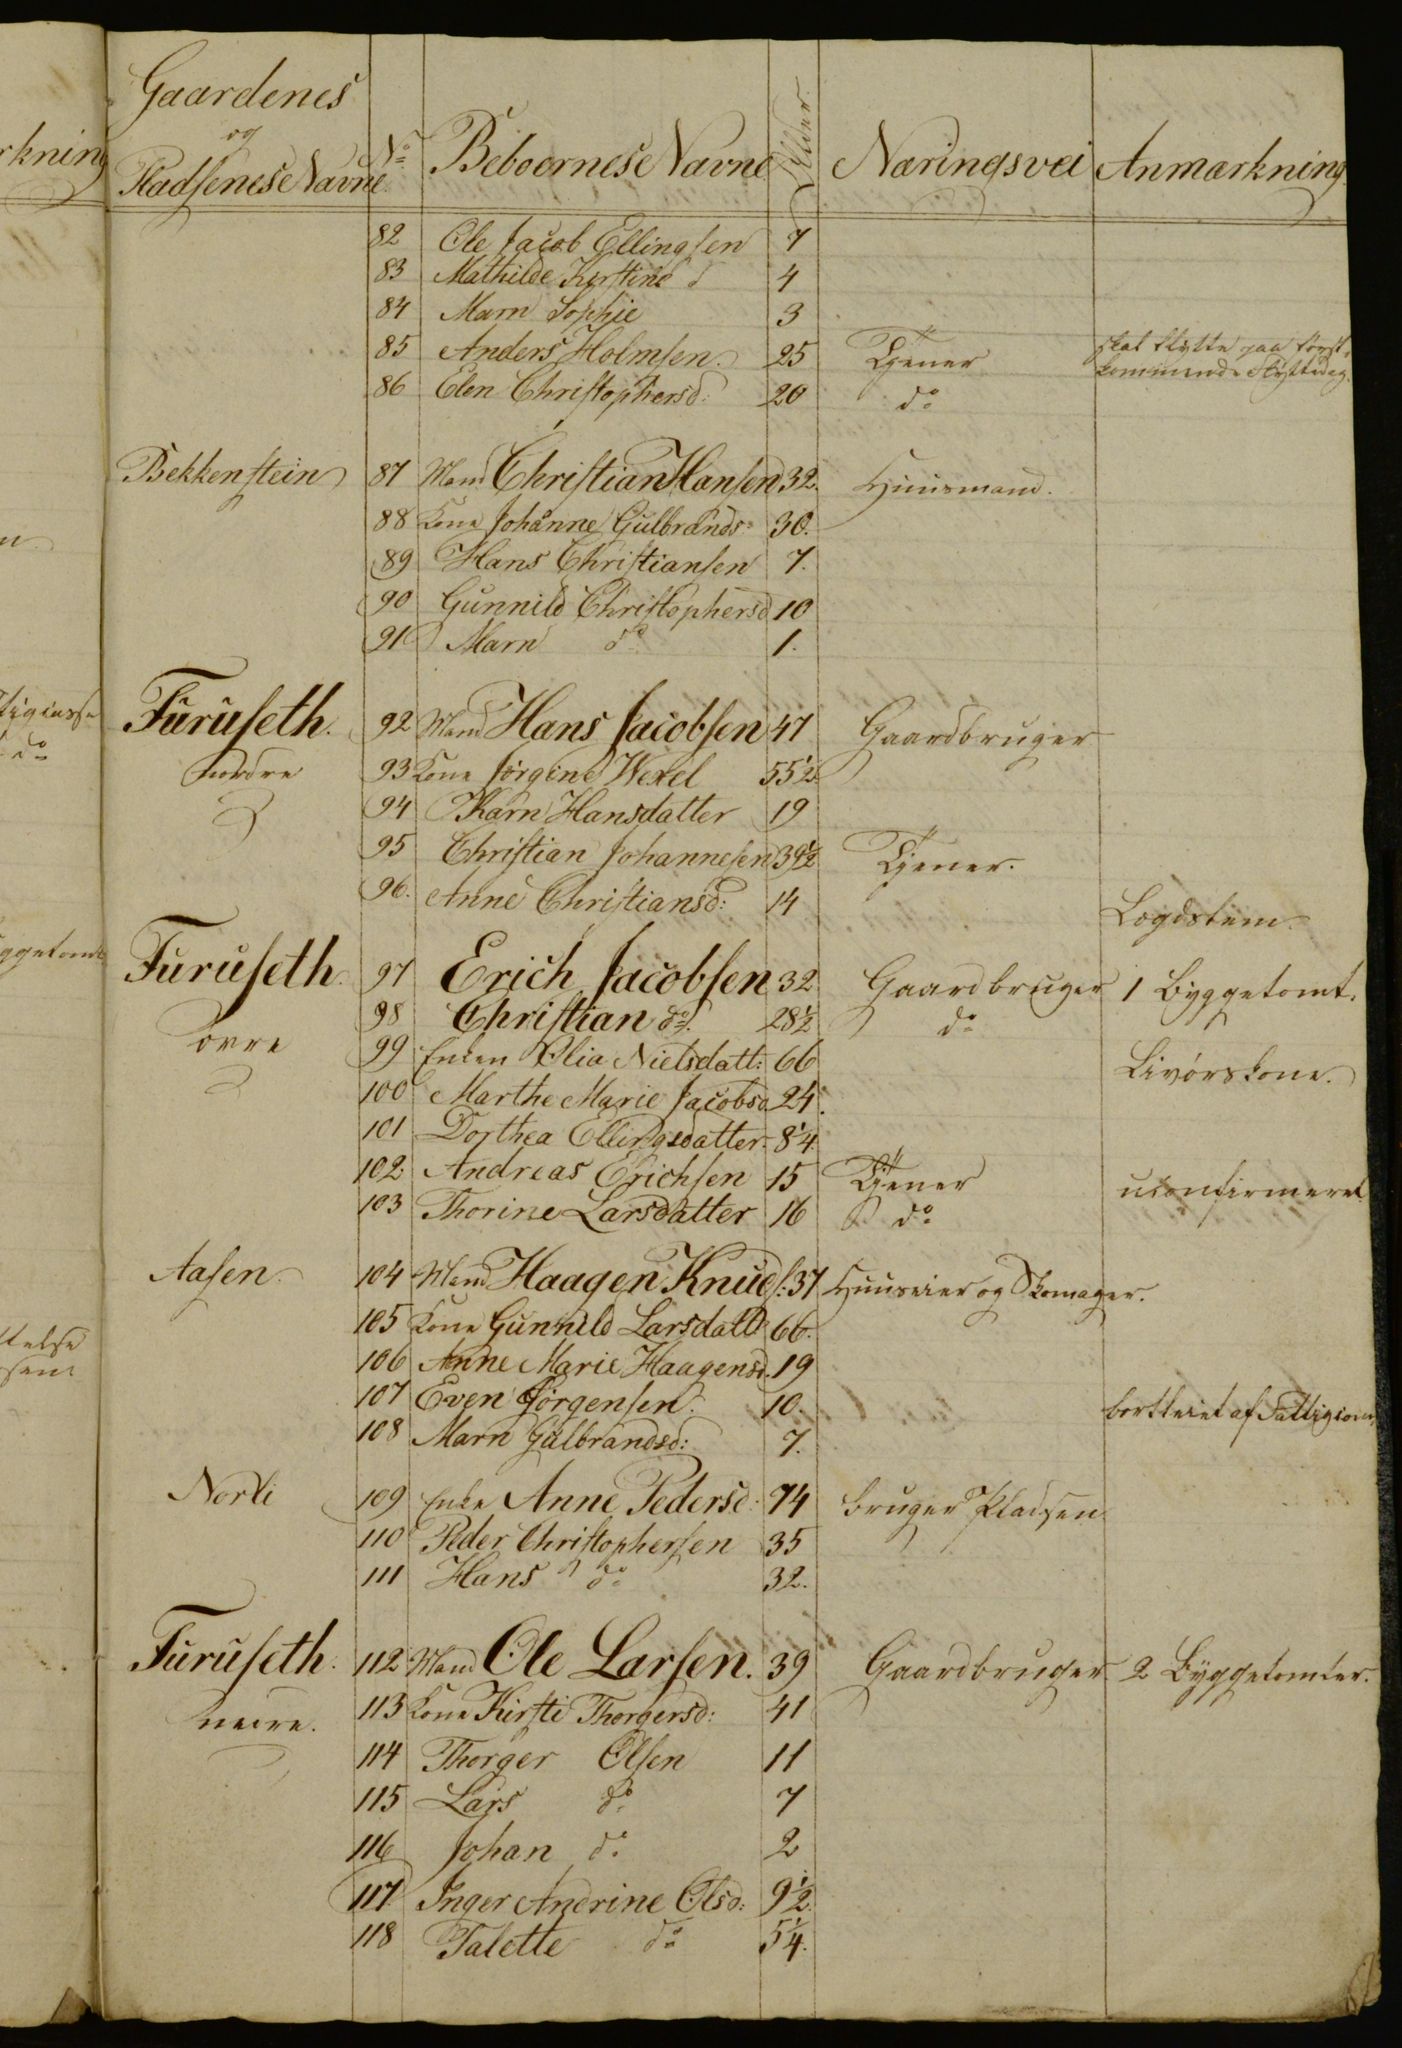 Gaardenes
og
Pladsenes Navne
No
Beboernes Navne
Alder.
Næringsvei
Anmærkning
82 Ole Jacob Ellingsen 7
83 Mathilde Kirstine d 4
84 Marn Sophie 3
85 Anders Holmsen. 25 Tjener skal flytte paa først-
kommende Flyttedag.
86 Elen Christophersd: 20 do
Bekkenstein 87 Mand Christian Hansen 32. Huusmand.
88 Kone Johanne Gulbrands: 30.
89 Hans Christiansen 7.
90 Gunnild Christophersd 10
91 Marn do 1.
Furuseth. 92 Mand Hans Jacobsen 47 Gaardbruger
nordre 93 Kone Jörgine Wexel 55 1/2
94 Karn Hansdatter 19
95 Christian Johannesen 39 1/2 Tjener.
96. Anne Christiansd: 14
Logdstem
Furuseth. 97 Erich Jacobsen 32 Gaardbruger 1 Byggetomt.
övre 98 Christian do. 28 1/2 do
99 Enken Olia Nielsdatt: 66 Livörskone.
100 Marthe Marie Jacobsd. 24.
101 Dorthea Ellingsdatter. 8 1/4
102: Andreas Erichsen 15 Tjener uconfirmeret
103 Thorine Larsdatter 16 do
Aasen. 104 Mand Haagen Knuds: 37 Huuseier og Skomager.
105 Kone Gunnild Larsdatt 66.
106 Anne Marie Haagensd. 19
107 Even Jörgensen. 10. bortleiet af Fattigcom
108 Marn Gulbrandsd: 7.
Norli 109 Enke Anne Pedersd: 74 bruger Pladsen
110 Peder Christophersen 35
111 Hans do 32.
Furuseth. 112 Mand Ole Larsen. 39 Gaardbruger 2 Byggetomter.
nedre. 113 Kone Kirsti Thorgersd: 41
114 Thorger Olsen 11
115 Lars do 7
116 Johan do 2
117 Inger Andrine Olsd: 9 1/2.
118 Talette do 5 1/4.